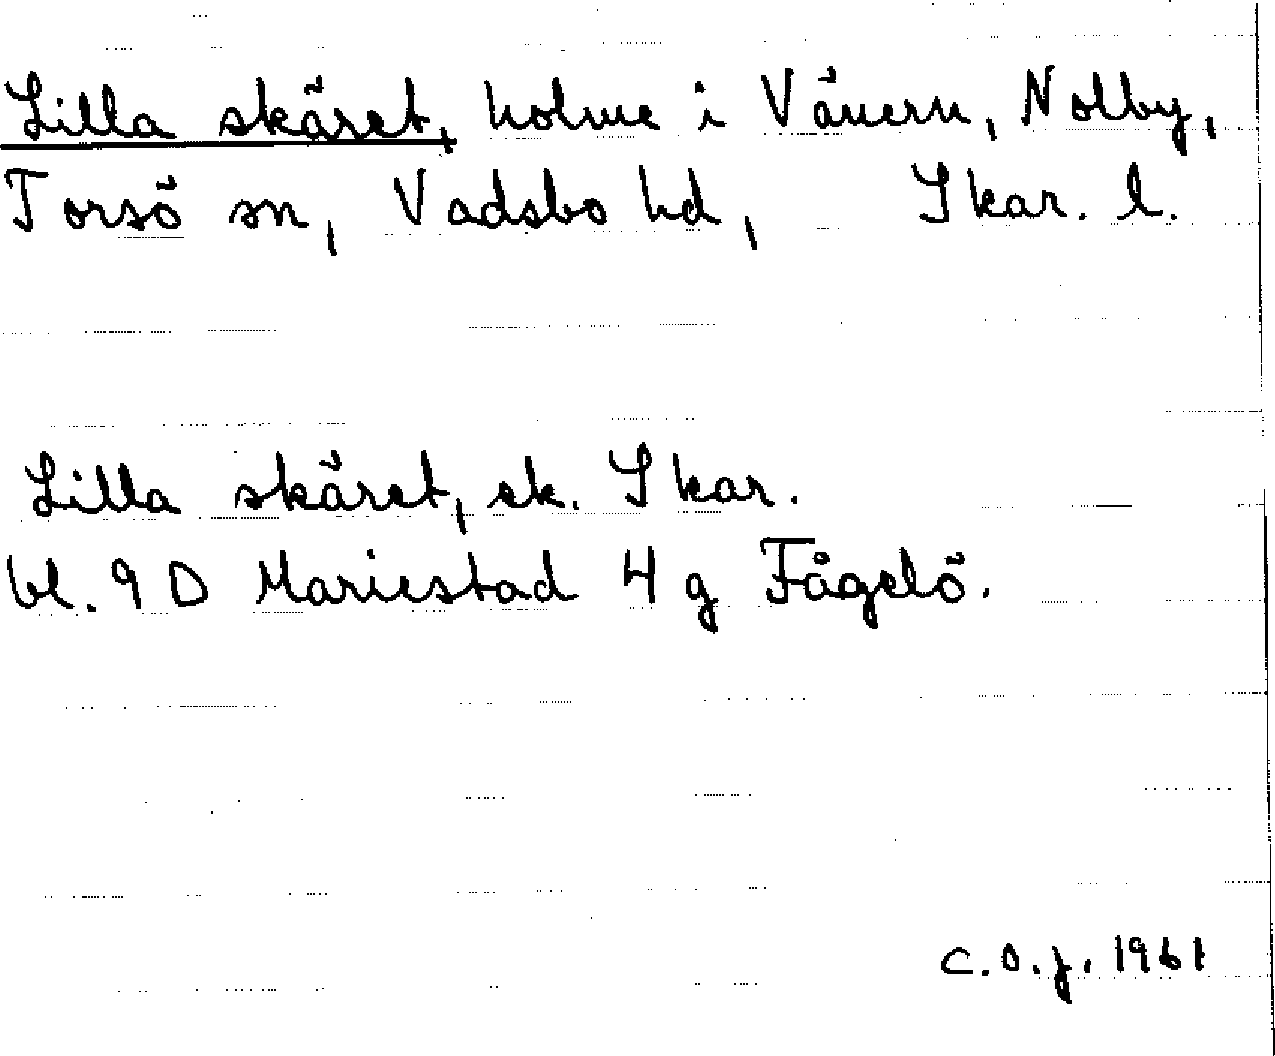 Lilla skäret, holme i Vänern, Nolby,
Torsö sn, Vadsbo hd, Skar. l.
Lilla skäret, ek. Skar.
bl. 9 D Mariestad 4 g Fågelö.
C.O.J. 1961